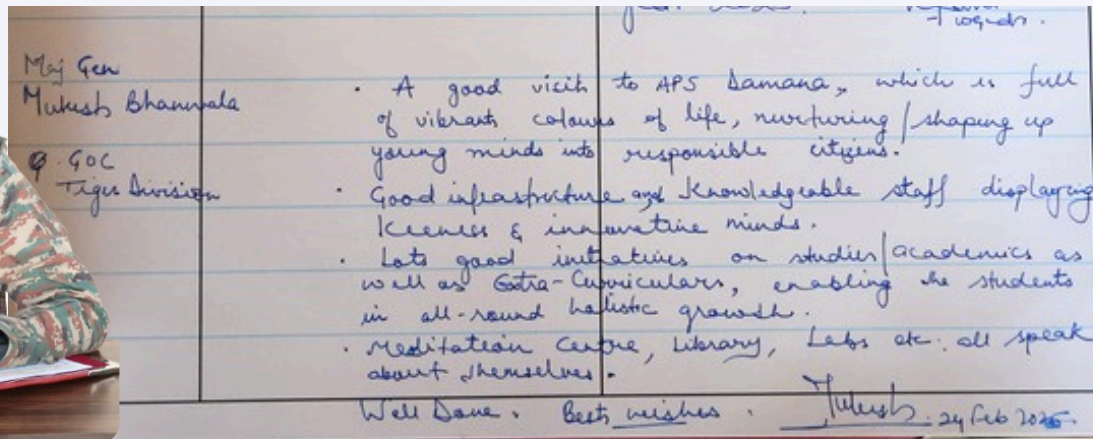 Maj Gen
Mukesh Bhanwala
GOC
Tiger Division
· A good visit to APS Damana, which is full
of vibrants colours of life, nurturing/shaping up
young minds into responsible citizens.
· Good infrastructure and Knowledgeable staff displaying
Keeness & innovative minds.
· Lots good initiatives on studies/academics as
well as Extra-Curriculars, enabling the students
in all-round holistic growth.
· Meditation Centre, Library, Labs etc. all speak
about themselves.
Well Done. Best wishes. Mukesh 24 Feb